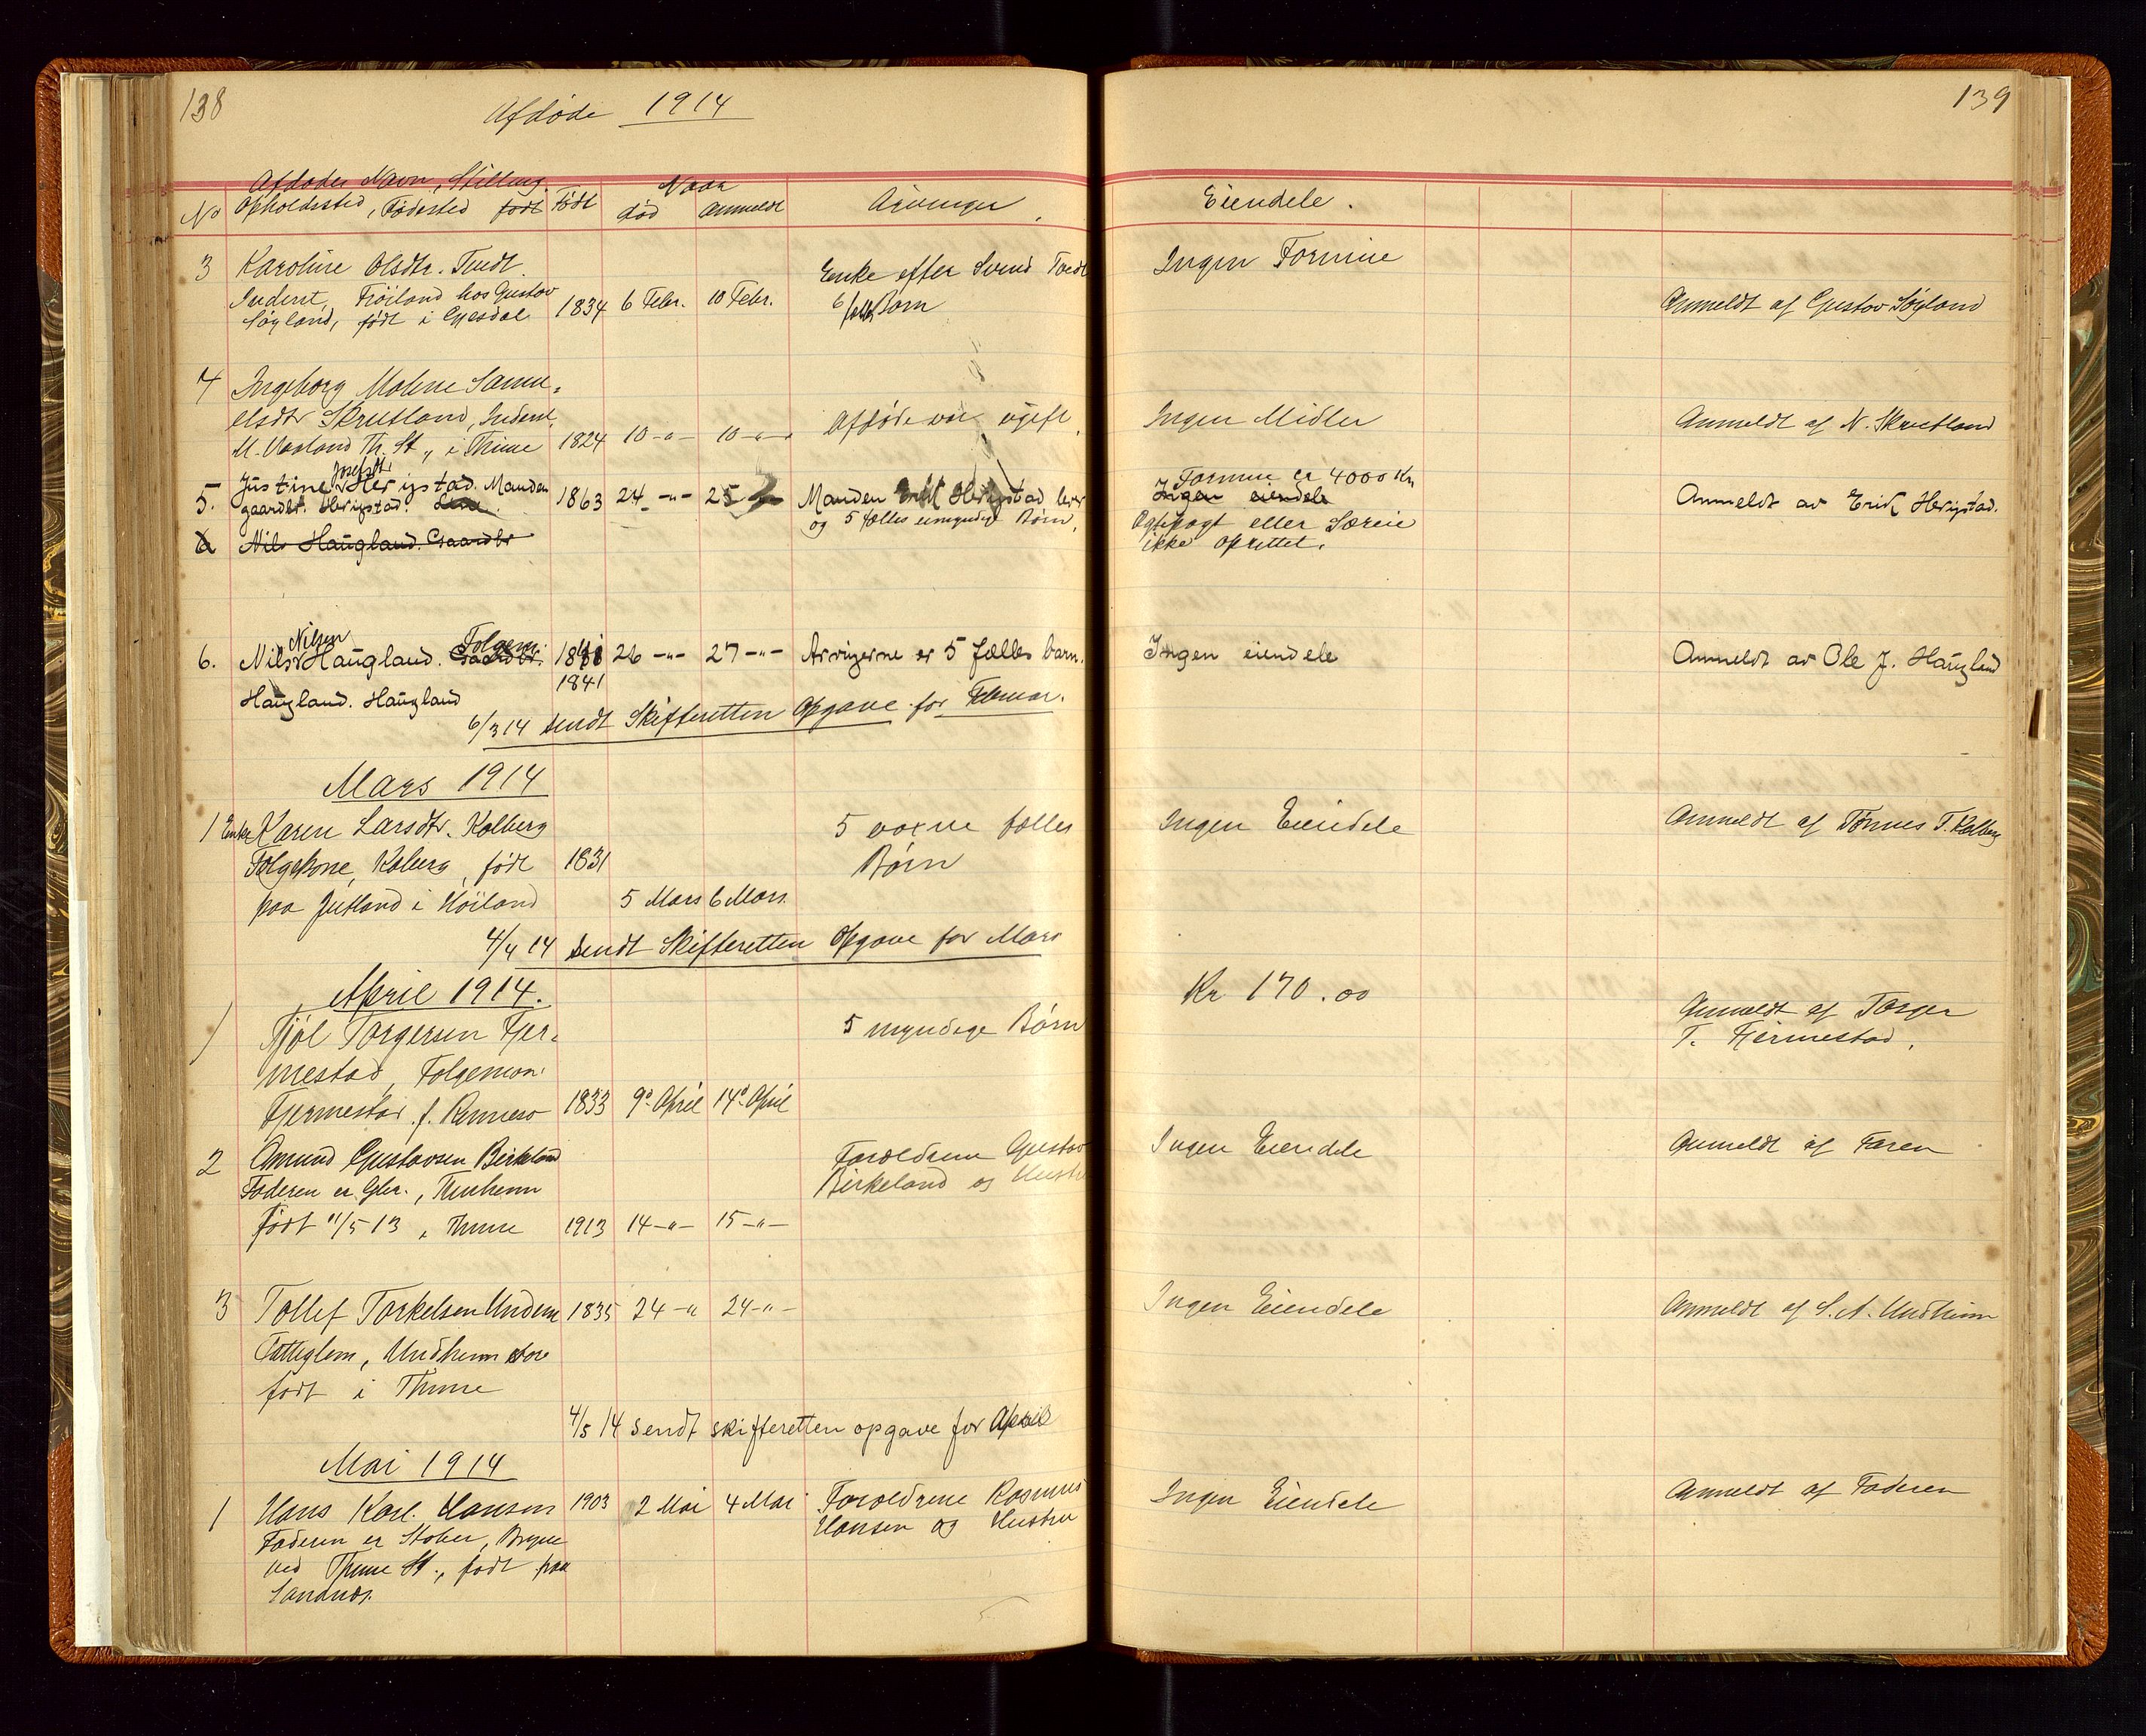 138
Afdøde 1914
139
Afdødes Navn, Stilling
Opholdssted, Fødested født
No
Født
Naar
død
anmeldt
Arvinger.
Eiendele.
3 Karoline Olsdtr. Tvedt.
Inderst, Frøiland hos Gustav
Søyland, født i Gjesdal
1834 6 Febr. 10 Febr.
Enke efter Svend Tvedt
6 fælles Børn
Ingen Formue
Anmeldt af Gustav Søyland
4 Ingeborg Malene Samu-
elsdtr Skrutland, Inderst,
M. Vasland Th. St., i Thime
1824 10 -"- 10 -"-
Afdøde var ugift.
Ingen Midler
Anmeldt af N. Skrutland
5. Justine Josefsdtr Herigstad. Manden
gaardbr. Herigstad.
1863 24 -"- 25
Manden Erik Herigstad lever
og 5 fælles umyndige Børn.
Formue er 4000 Kr.
Ingen eiendele
Ægtepagt eller Særeie
ikke oprettet.
Anmeldt av Erik Herigstad.
6 Nils Haugland. Gaardbr
6. Nils Nilsen Haugland. Gaardbr. Folgem.
Haugland. Haugland
1841
26 -"- 27 -"-
Arvingerne er 5 fælles barn.
Ingen eiendele
Anmeldt av Ole J. Haugland
6/3 14 sendt Skifteretten Opgave for Februar.
Mars 1914
1 Enke Karen Larsdtr. Kalberg
Folgekone, Kalberg, født
paa Jutland i Høiland
1831
5 Mars 6 Mars.
5 voxne fælles
Børn
Ingen Eiendele
Anmeldt af Tønnes T. Kalberg
4/4 14 sendt Skifteretten Opgave for Mars
April 1914.
1 Kjøl Torgersen Fjer-
mestad, Folgemon.
Fjermestad. f. Rennesø
1833 9d. April 14d. April
5 myndige Børn
Kr 170.00
Anmeldt af Torger
T. Fjermestad.
2 Amund Gustavsen Birkeland
Faderen er Gbr., Thuheim
født 11/5 13, Thime
1913 14 -"- 15 -"-
Foreldrene Gustav
Birkeland og Hustru
Ingen Eiendele
Anmeldt af Faren
3 Tollef Torkelsen Undem
Fattiglem, Undheim store
født i Thime
1835 24 -"- 24 -"-
Ingen Eiendele
Anmeldt af S. A. Undheim
4/5 14 sendt skifteretten opgave for April
Mai 1914
1 Hans Karl. Hansen
Faderen er Støber, Bryne
ved Thime St., født paa
Sandnæs.
1903 2 Mai 4 Mai
Foreldrene Rasmus
Hansen og Hustru
Ingen Eiendele
Anmeldt af Faderen